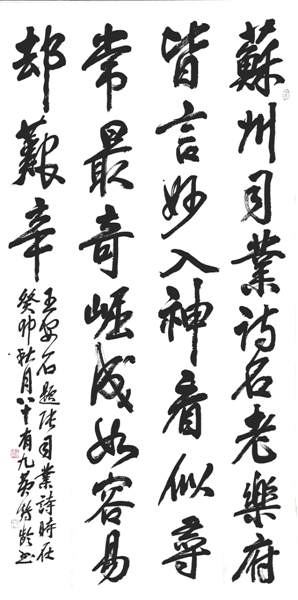 蘇州司業詩名老樂府
皆言妙入神看似尋
常最奇崛成如容易
却艱辛
王安石題张司業詩時在
癸卯秋月八十有九黄